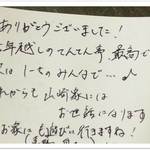 ありがとうございました!
年越しのてんてん亭、最高で
はいちのみんなで…♪
れからも山崎家には
お世話になります
お家にも遊びに行きますね!